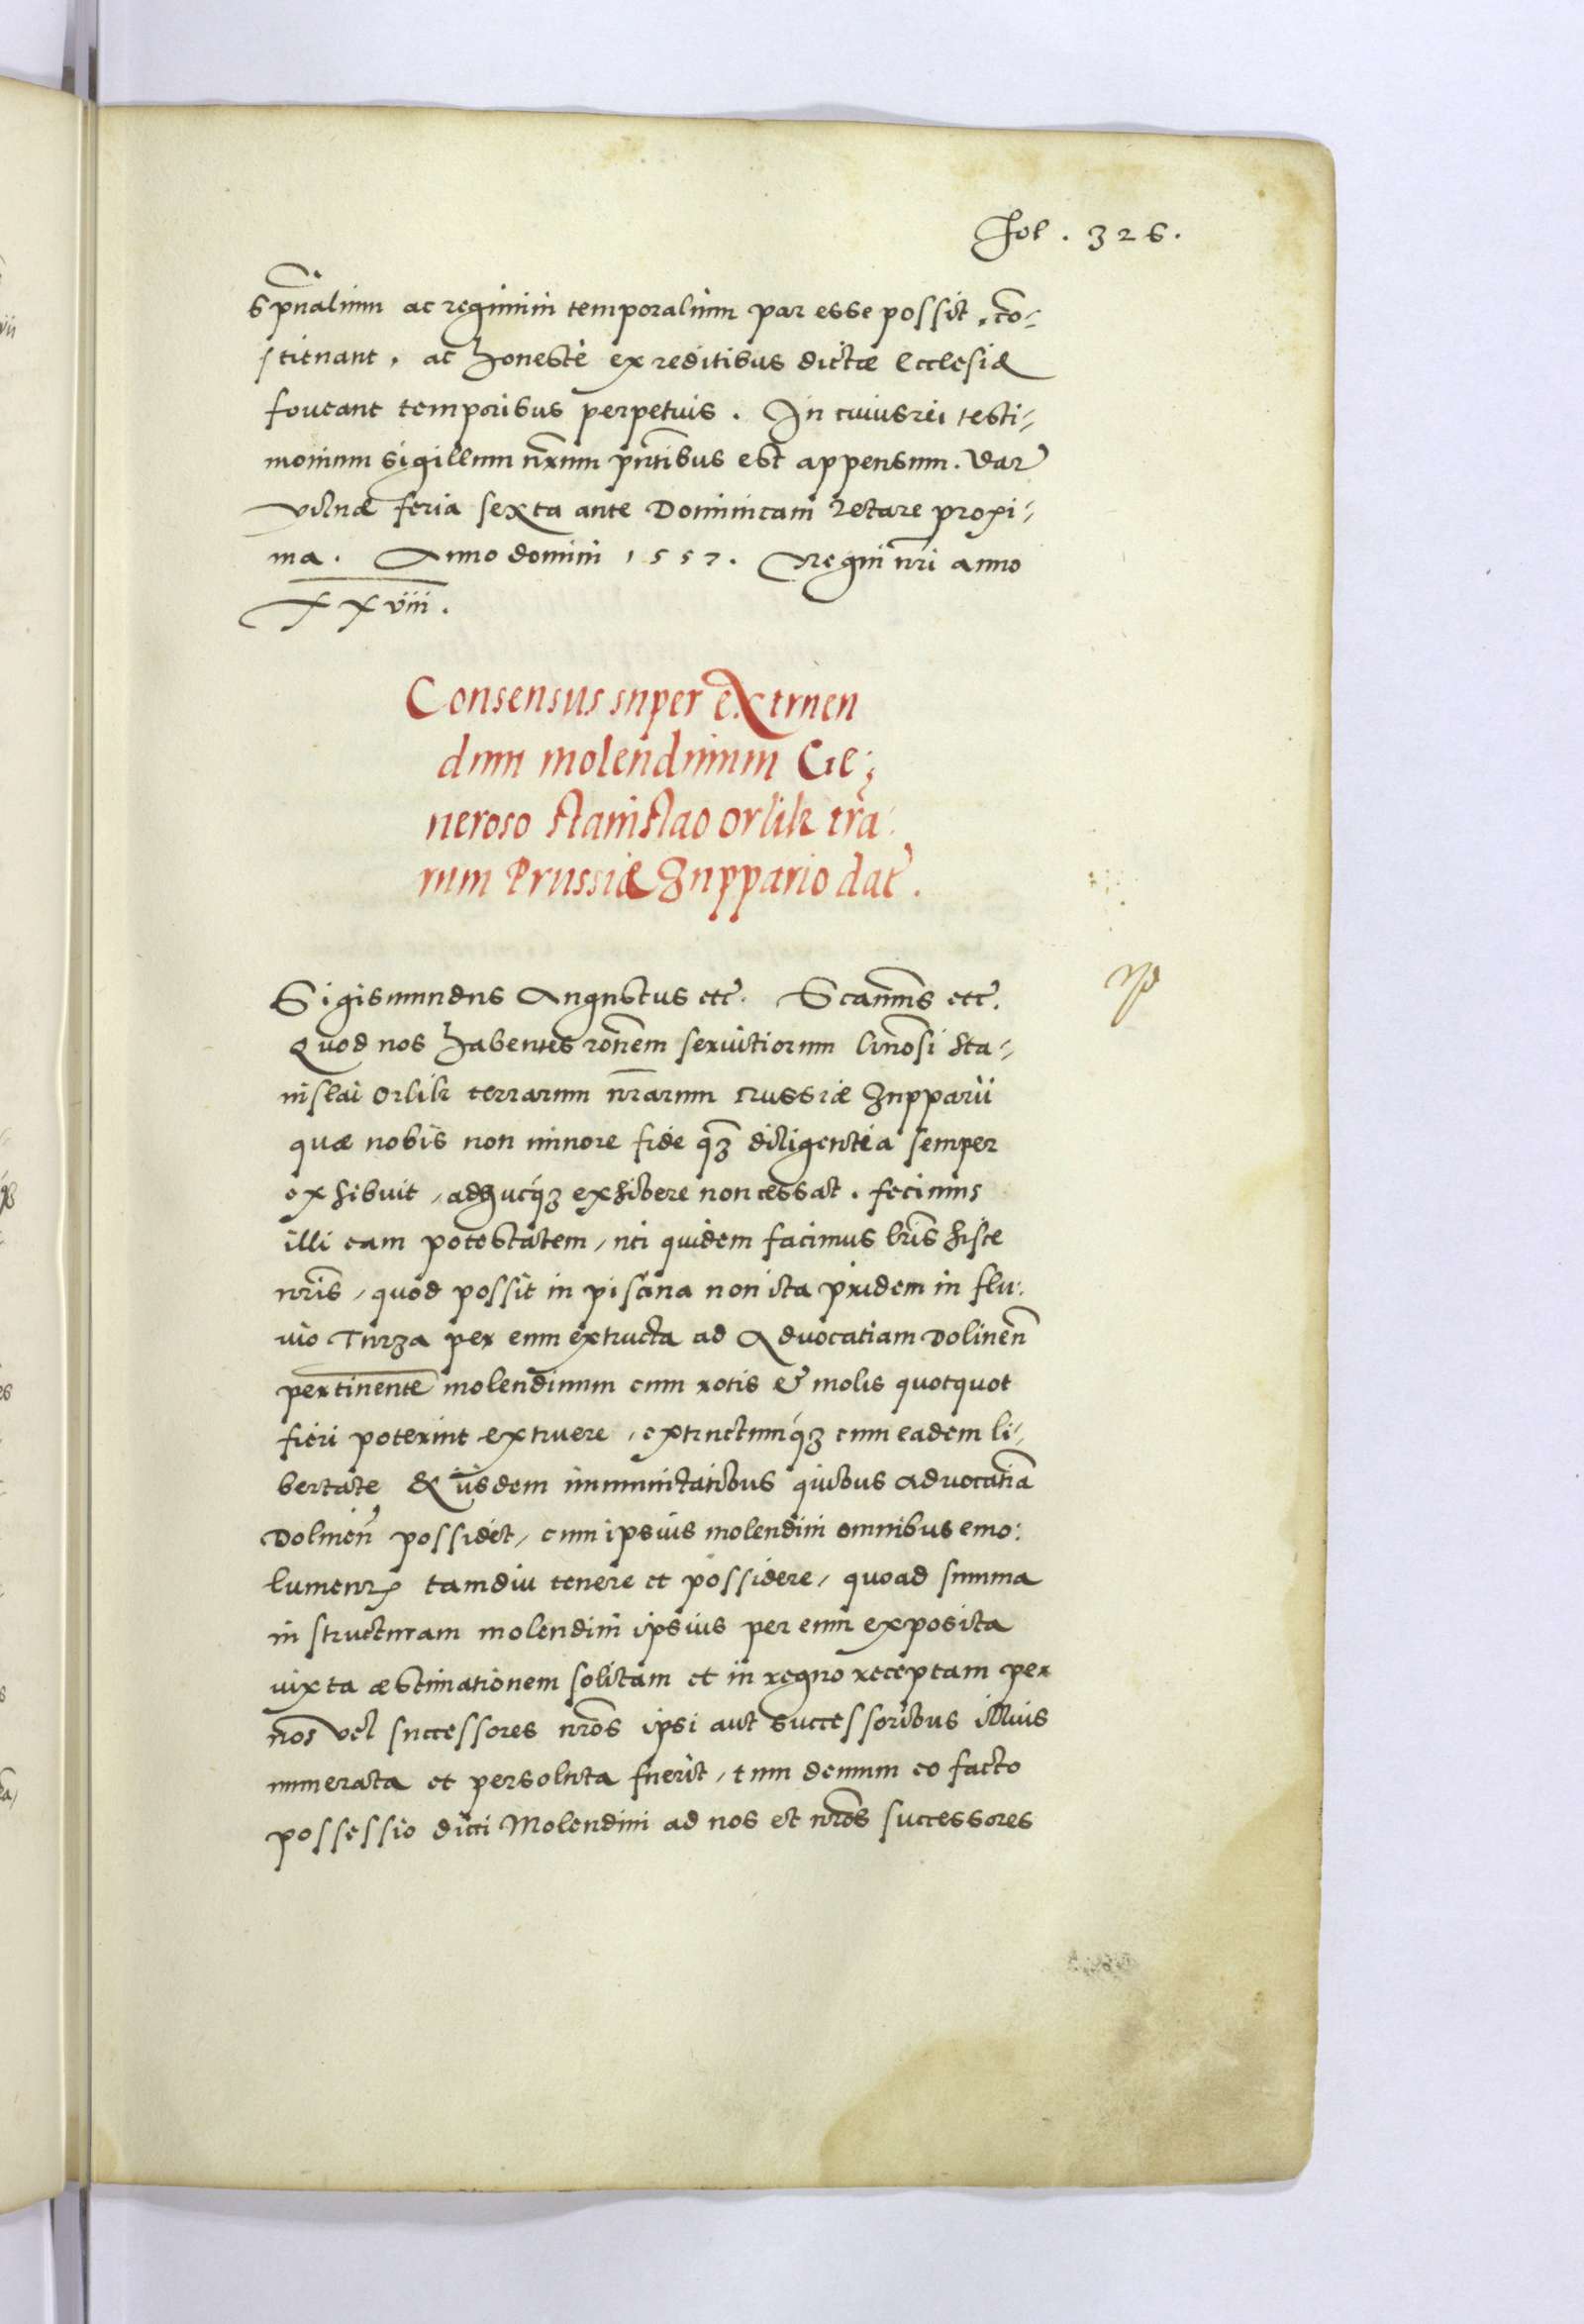 Fol. 326.
sp̃ualium ac regimini temporalium par esse possit, cõ-
stituant, ac honestè ex reditibus dictæ Ecclesiæ
foveant temporibus perpetuis. In cuius rei testi-
monium sigillum nr̃um pñtibus est appensum. Dat̃
Vilnæ feria sexta ante Dominicam Letare proxi-
ma. Anno domini 1557. Regni nr̃i anno
XXviii.
Consensus super extruen
dum molendinum Ge-
neroso Stanislao Orlik tr̃a
rum Prussiæ Zuppario dat̃.
Sigismundus Augustus etc̃. Scañms etc̃.
Quod nos habentes rõnem servitiorum Gñosi Sta-
nislai Orlik terrarum nr̃arum Russiæ Zupparii
quæ nobis non minore fide q̃ȝ diligentia semper
exhibuit, adhucq́ȝ exhibere non cessat. fecimus
illi eam potestatem, uti quidem facimus lr̃is hisce
nr̃is, quòd possit in piscina non ita pridem in flu-
vio Turza per eum extructa ad Advocatiam Dolineñ
pertinente molendinum cum rotis & molis quotquot
fieri poterint extruere, extructumq́ȝ cum eadem li-
bertate & iisdem immunitatibus quibus advocatiã
Dolineñ possidet, cum ipsius molendini omnibus emo-
lument͛ tamdiu tenere et possidere, quoad summa
in structuram molendini ipsius per eum exposita
iuxta æstimationem solitam et in regno receptam per
nos vel successores nr̃os ipsi aut successoribus illius
numerata et persoluta fuerit, tum demum eo facto
possessio dicti Molendini ad nos et nr̃os successores